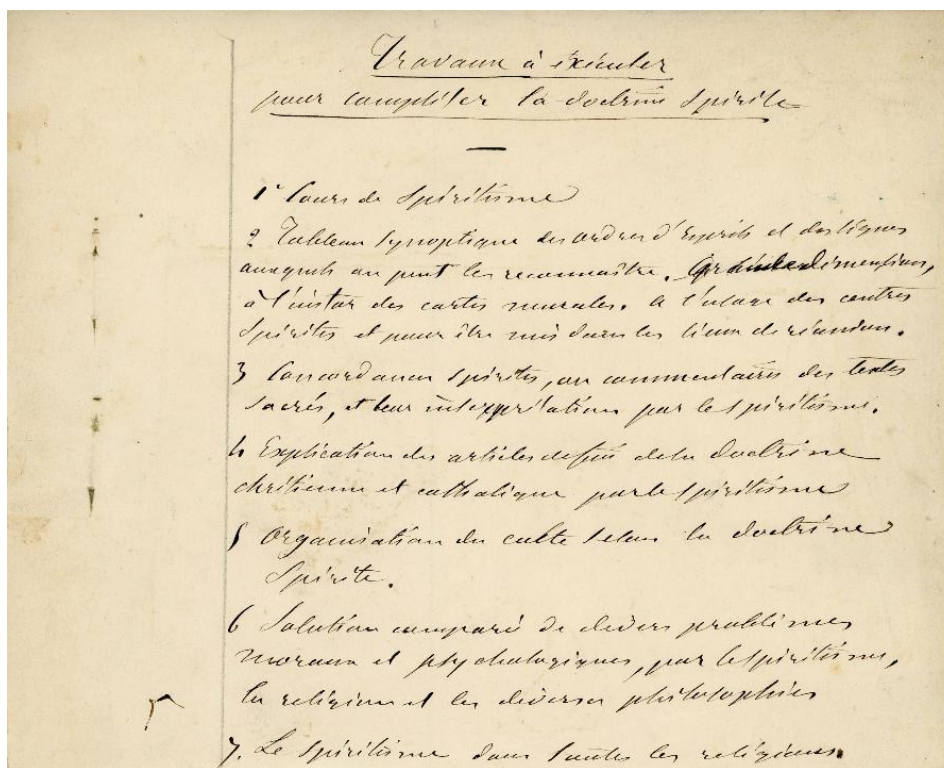 Travaux à exécuter
pour compléter la doctrine spirite
1° Cours de Spiritisme
2 Tableau Synoptique des ordres d'Esprits et des signes
auxquels on peut les reconnaître. Grandes dimensions,
à l'instar des cartes murales. à l'usage des centres
Spirites et pour être mis dans les lieux de réunion.
3 Concordances Spirites, ou commentaires des textes
sacrés, et leur interprétation par le spiritisme.
4 Explication des articles de foi de la doctrine
chrétienne et catholique par le spiritisme
5 Organisation du culte selon la doctrine
Spirite.
6 Solution comparée de divers problèmes
moraux et psychologiques, par le spiritisme,
la religion et les diverses philosophies
7. Le Spiritisme dans toutes les religions